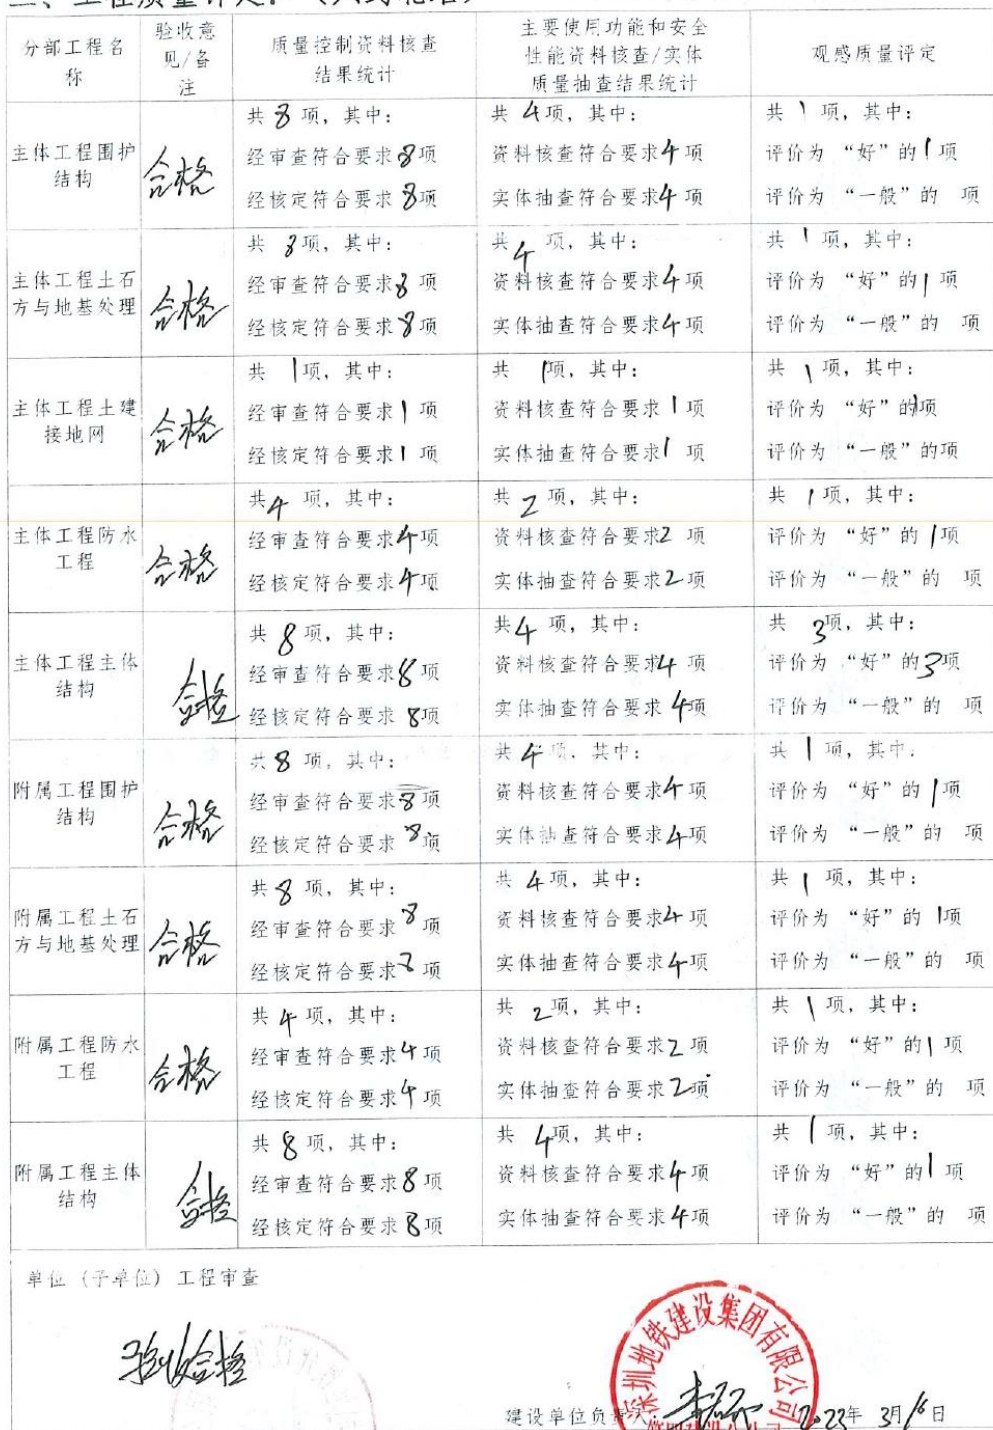 分部工程名称
验收意见/备注
质量控制资料核查结果统计
主要使用功能和安全性能资料核查/实体质量抽查结果统计
观感质量评定
主体工程围护结构
合格
共 8 项，其中：
经审查符合要求8项
经核定符合要求 8项
共 4项，其中：
资料核查符合要求4 项
实体抽查符合要求4 项
共 1 项，其中：
评价为 “好”的1项
评价为 “一般”的 项
主体工程土石方与地基处理
合格
共 8项，其中：
经审查符合要求8 项
经核定符合要求 8项
共 4 项，其中：
资料核查符合要求4 项
实体抽查符合要求4项
共 1 项，其中：
评价为 “好”的1项
评价为 “一般”的 项
主体工程土建接地网
合格
共 1项，其中：
经审查符合要求1 项
经核定符合要求1 项
共 1项，其中：
资料核查符合要求 1项
实体抽查符合要求1 项
共 1 项，其中：
评价为 “好”的1项
评价为 “一般”的项
主体工程防水工程
合格
共4 项，其中：
经审查符合要求4项
经核定符合要求4项
共 2 项，其中：
资料核查符合要求2 项
实体抽查符合要求2项
共 1项，其中：
评价为 “好”的 1项
评价为 “一般”的 项
主体工程主体结构
合格
共 8 项，其中：
经审查符合要求8 项
经核定符合要求 8项
共4 项，其中：
资料核查符合要求4 项
实体抽查符合要求 4项
共 3项，其中：
评价为 “好”的3项
评价为 “一般”的 项
附属工程围护结构
合格
共8 项，其中：
经审查符合要求8项
经核定符合要求 8项
共 4 项，其中：
资料核查符合要求4 项
实体抽查符合要求4项
共 1 项，其中：
评价为 “好”的 1项
评价为 “一般”的 项
附属工程土石方与地基处理
合格
共 8 项，其中：
经审查符合要求8 项
经核定符合要求8 项
共 4项，其中：
资料核查符合要求4 项
实体抽查符合要求4项
共 1 项，其中：
评价为 “好”的 1项
评价为 “一般”的 项
附属工程防水工程
合格
共 4 项，其中：
经审查符合要求4项
经核定符合要求4 项
共 2项，其中：
资料核查符合要求2 项
实体抽查符合要求2项
共 1 项，其中：
评价为 “好”的1 项
评价为 “一般”的 项
附属工程主体结构
合格
共 8 项，其中：
经审查符合要求8 项
经核定符合要求8项
共 4项，其中：
资料核查符合要求4 项
实体抽查符合要求4项
共 1 项，其中：
评价为 “好”的1 项
评价为 “一般”的 项
单位（子单位）工程审查
验收合格
深圳地铁建设集团有限公司
建设单位负责人：
2023年 3月16日